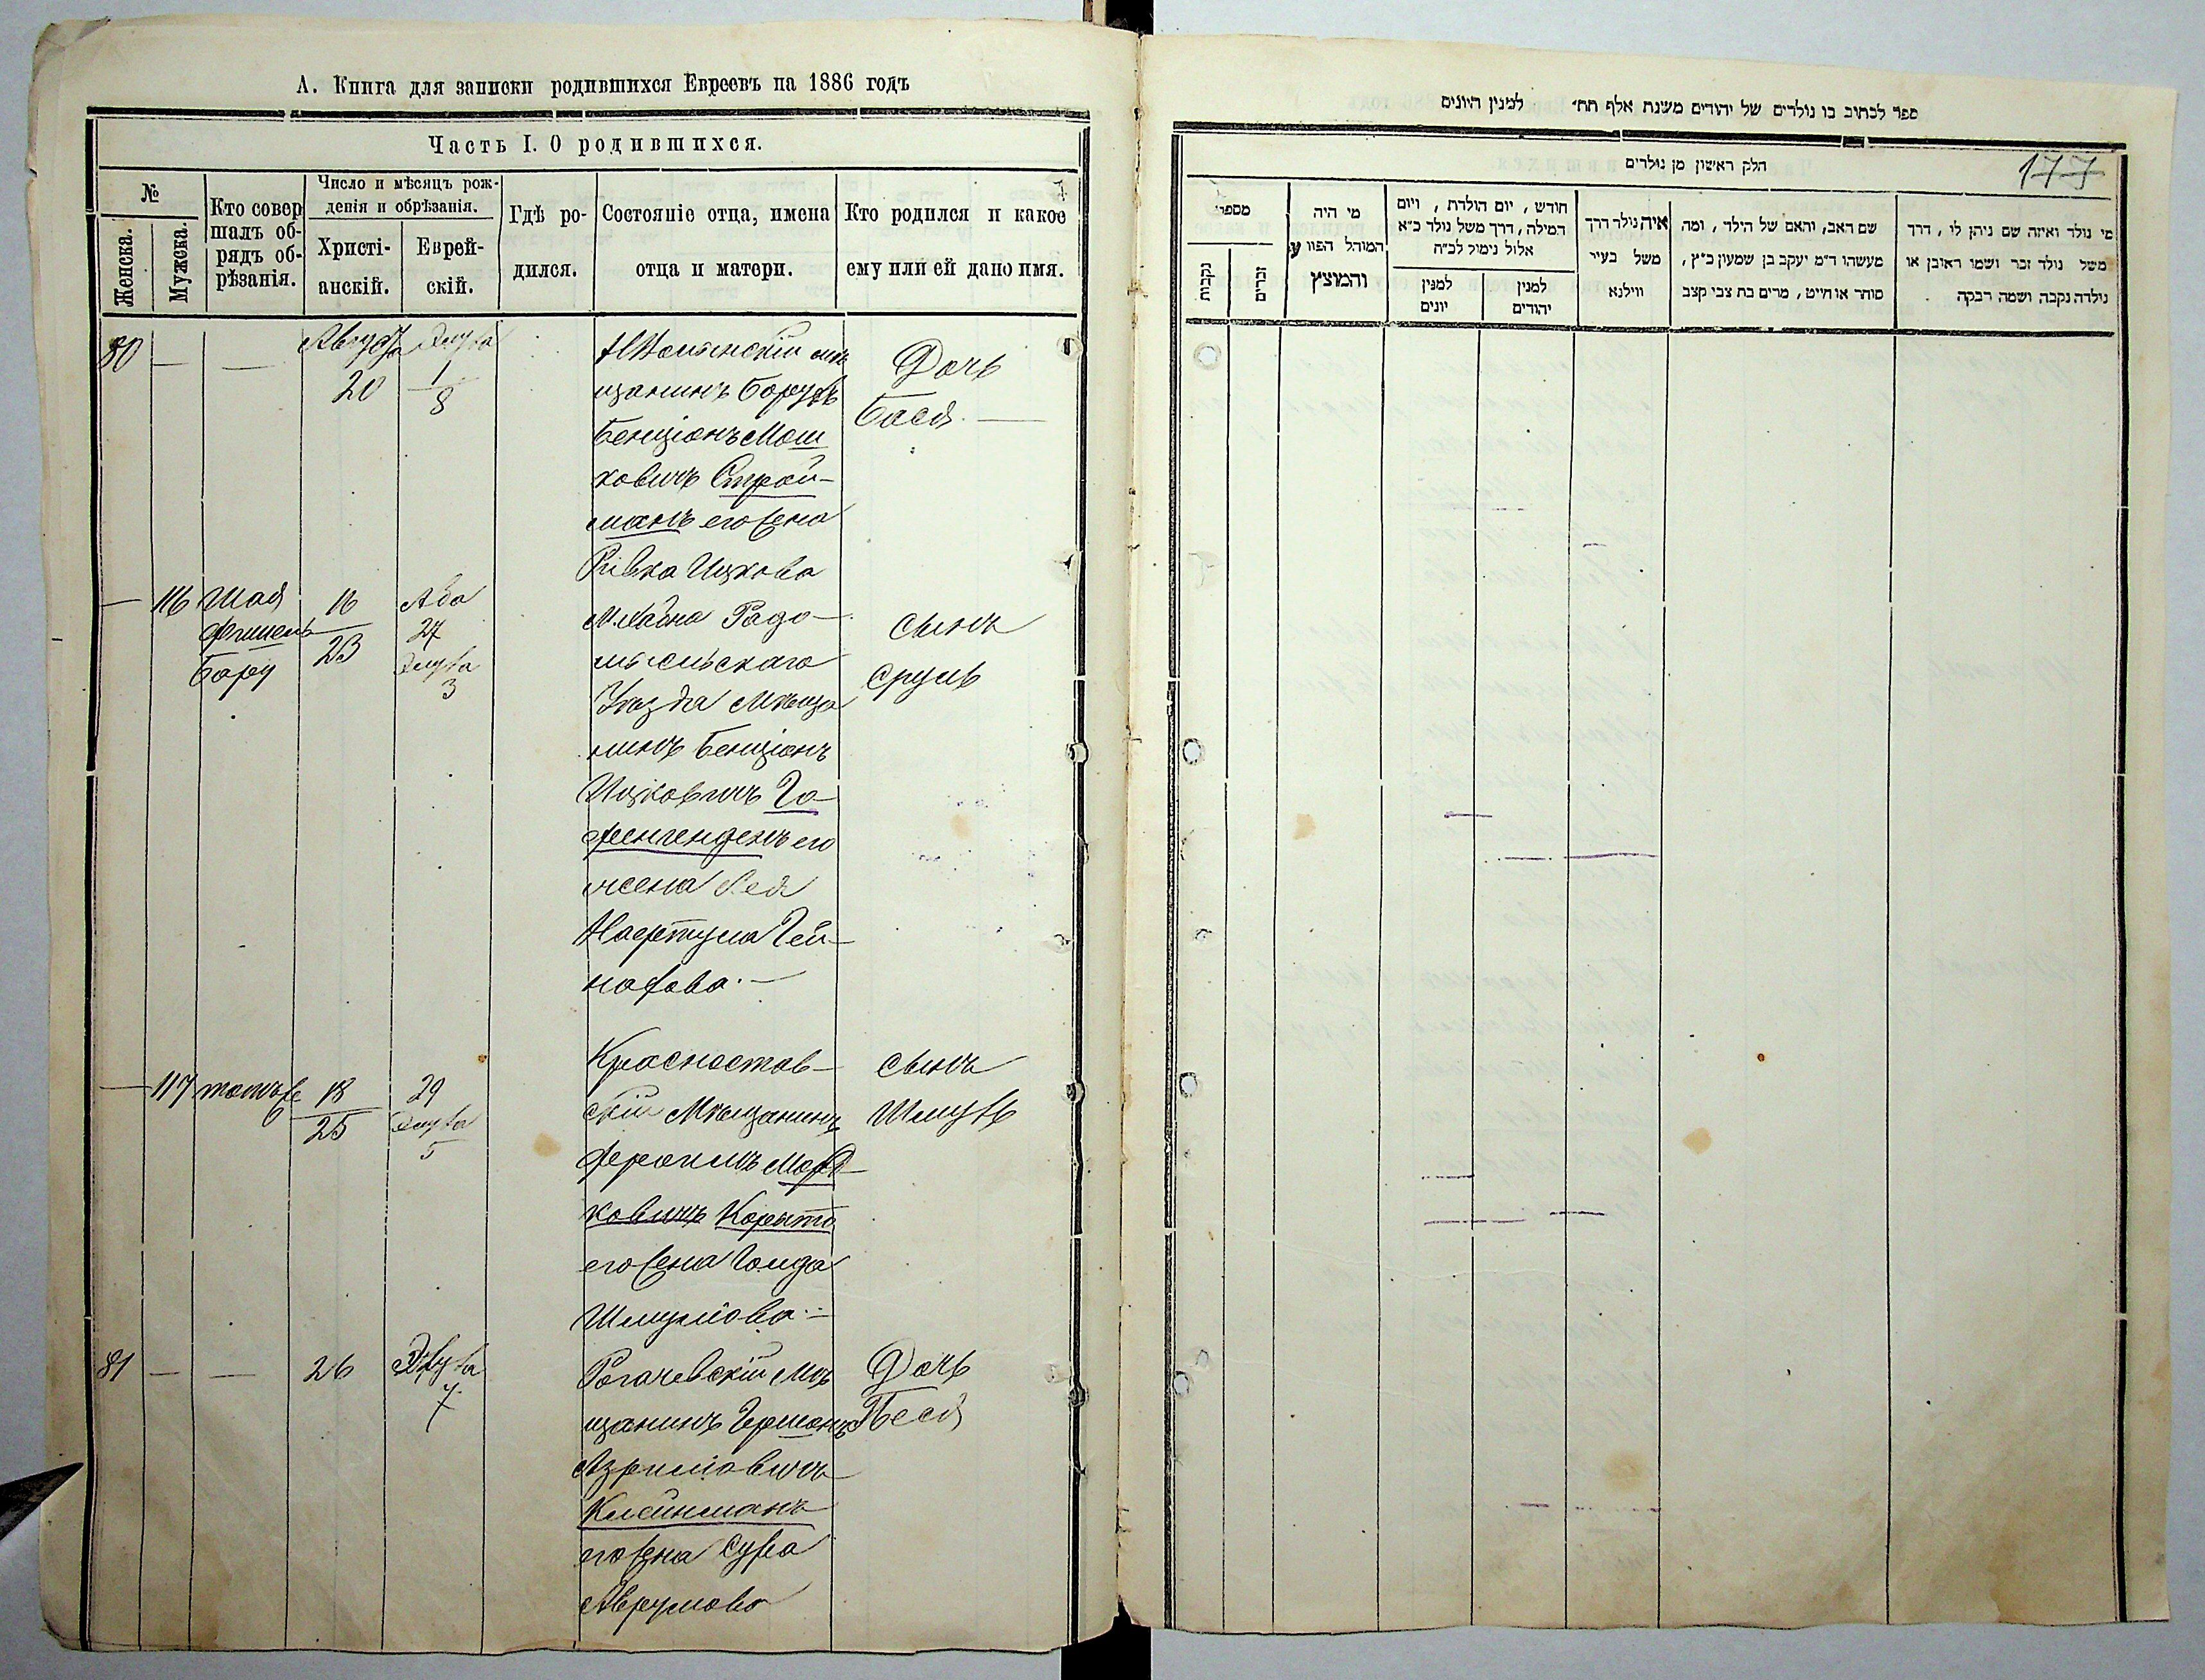 А. Книга для записки родившихся Евреевъ на 1886 годъ
Часть I. О родившихся.
№
Женска.
Мужска.
Кто совер
шалъ об-
рядъ об-
рѣзанія.
Число и мѣсяцъ рож-
денія и обрѣзанія.
Христі-
анскій.
Еврей-
скій.
Гдѣ ро-
дился.
Состояніе отца, имена
отца и матери.
Кто родился и какое
ему или ей дано имя.
80 — —
Августа
20
Элула
1
8
щанинъ Борухъ
Бенціонъ Мош
ковичъ Строй-
манъ его жена
Ривка Ицкова
Дочь
Бася. —
— 116
Шая
Фишель
Бару
16
23
Ава
27
Элула
3
Радо-
мысльскаго
Уѣзда Мѣща
нинъ Бенціонъ
Ицковичъ Го-
его
жена Лея
Гей-
нахова. —
сынъ
Сруль
— 117
тотъ же
18
25
29
Элула
5
Красностав-
скій Мѣщанинъ
Морд-
ковичъ Корыто
его жена Голда
Шмулйова. —
сынъ
Шмуль
81 — —
26
Элула
7
Рогачевскій Мѣ
щанинъ Гершонъ
Азрилйовичъ
Клейнманъ
его жена Сура
Аврумова
Дочь
Песя
ספר לכתוב בו נולדים של יהודים משנת אלף תת״ למנין היונים
177
חלק ראשון מן נולדים
מספר
נקבות
זכרים
מי היה
המוהל הפורע
והמוצץ
חודש, יום הולדת, ויום
המילה, דרך משל נולד כ״א
אלול נימול לכ״ח
למנין
יונים
למנין
יהודים
איה נולד דרך
משל בעיר
ווילנא
שם האב, והאם של הילד, ומה
מעשהו ד״מ יעקב בן שמעון כ״ץ,
סוחר או חייט, מרים בת צבי קצב
מי נולד ואיזה שם ניתן לו, דרך
משל נולד זכר ושמו ראובן או
נולדה נקבה ושמה רבקה